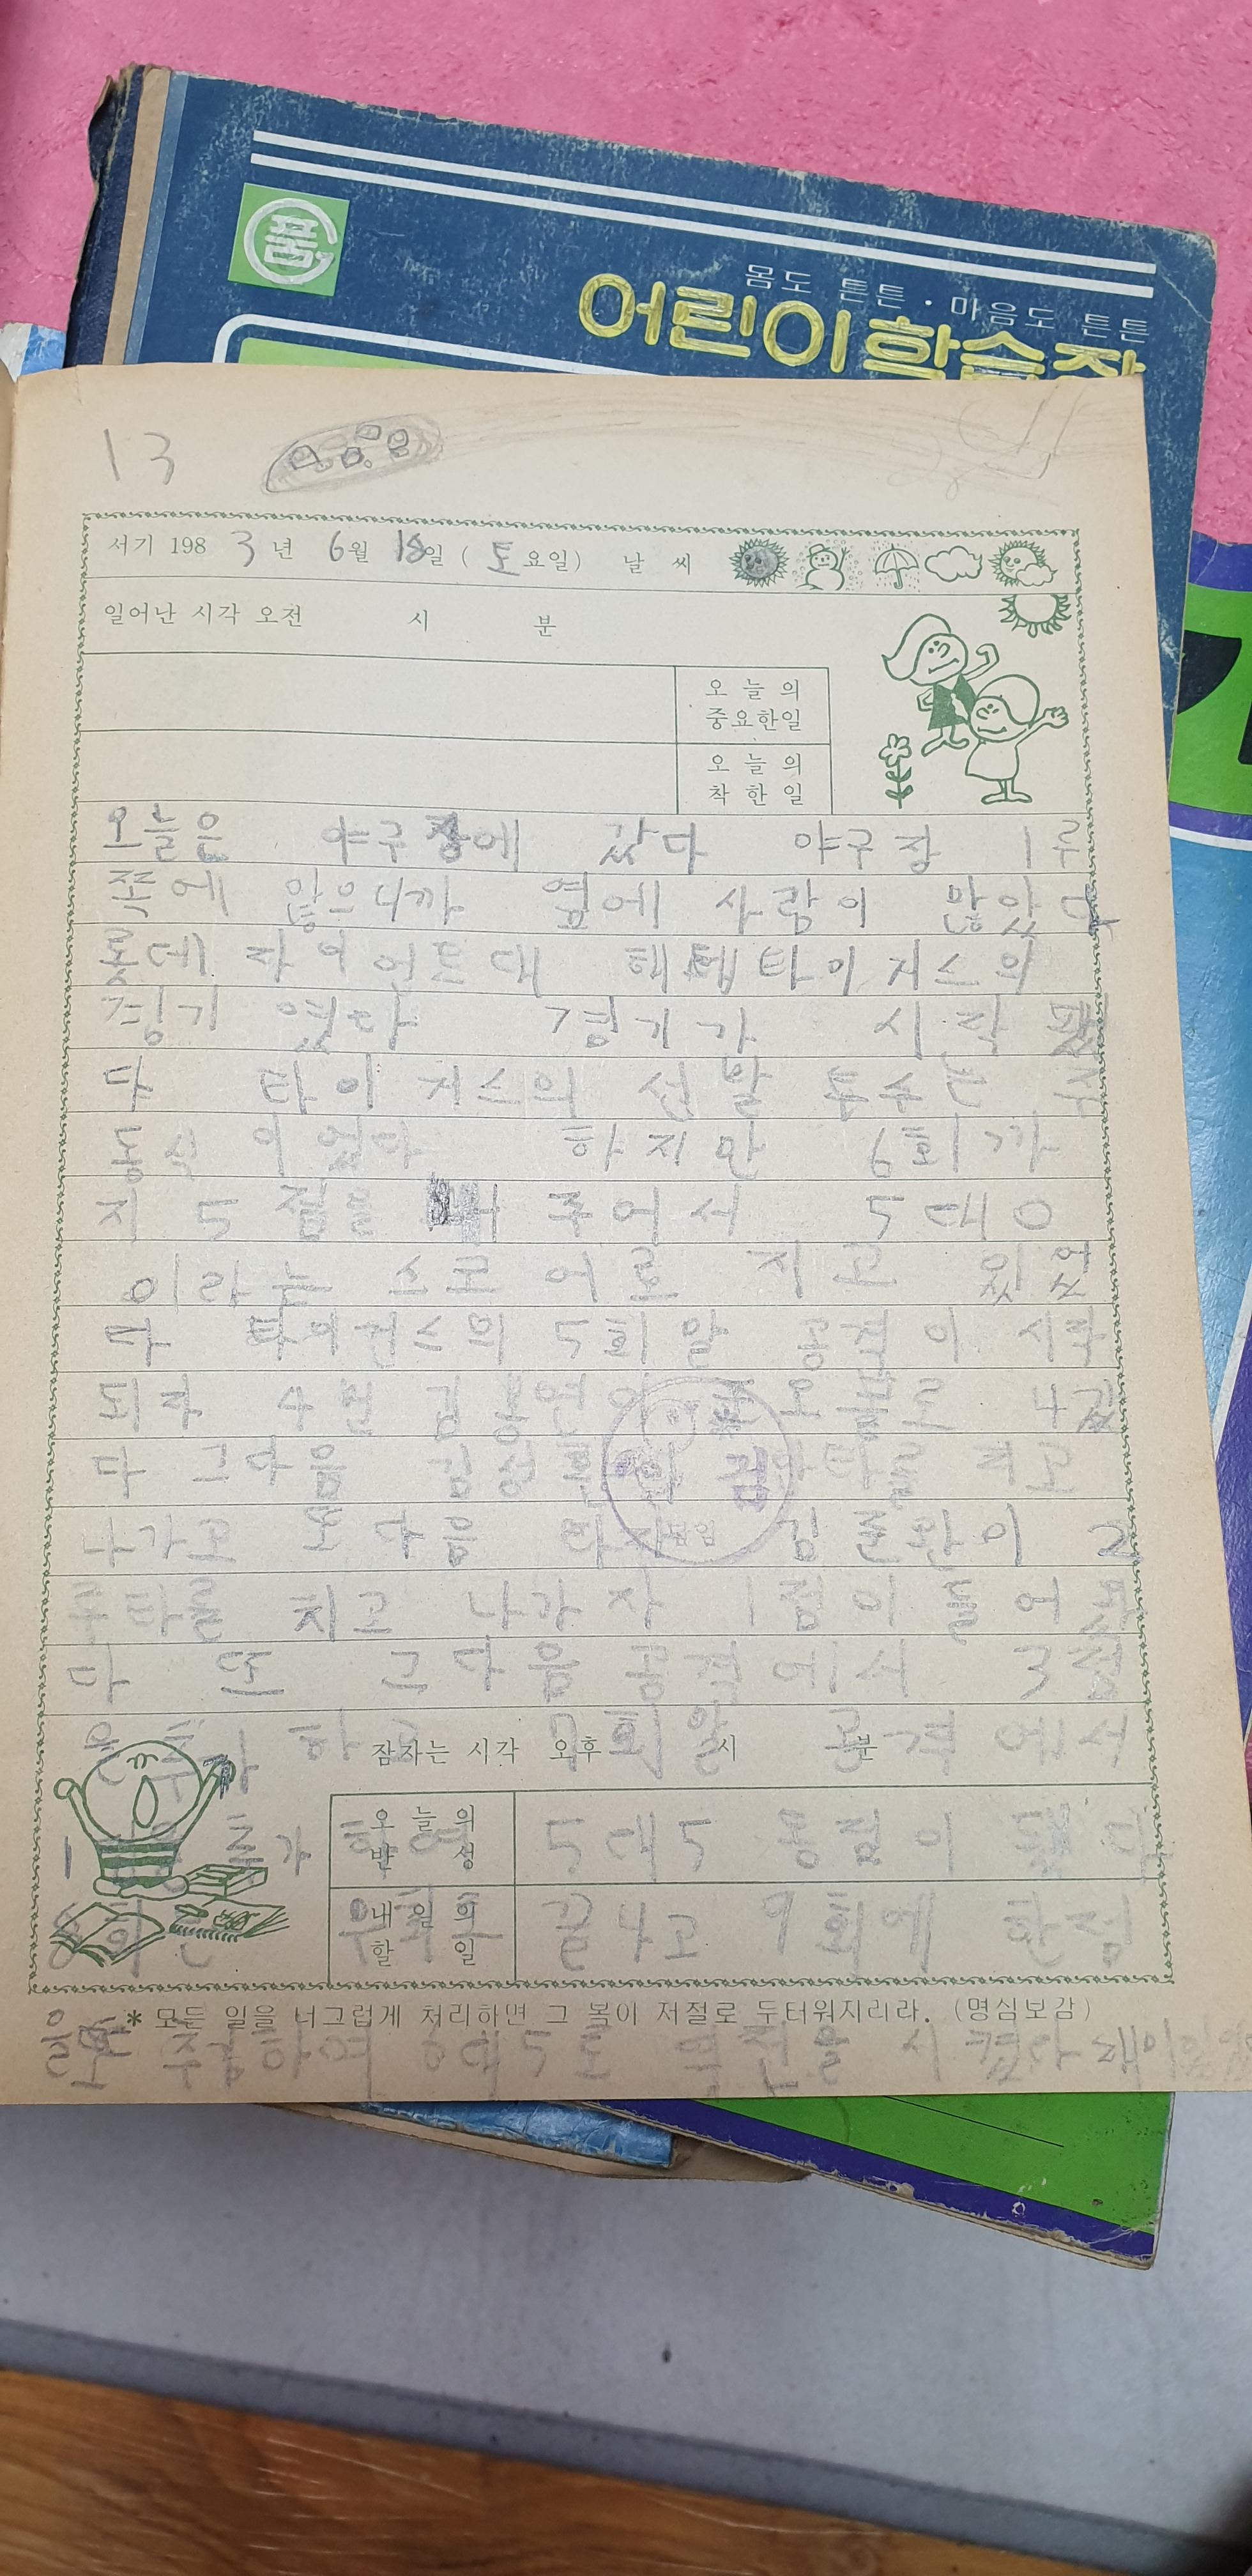 품
몸도 튼튼 · 마음도 튼튼
어린이 학습장
13
서기 1983년 6월 18일 (토요일) 날씨
일어난 시각 오전 시 분
오늘의
중요한일
오늘의
착한일
오늘은 야구장에 갔다 야구장 1루
쪽에 앉으니까 옆에 사람이 많았다
롯데 자이언트대 해태타이거스의
경기 였다 경기가 시작 됐
다 타이거스의 선발 투수는 주
동식 이었다 하지만 6회까
지 5점을 내 주어서 5대0
이라는 스코어로 지고 있었
다 타이거스의 5회말 공격이 시작
되자 4번 김봉연이 포오볼로 나갔
다 그다음 김성한이 안타를 치고
나가고 또 다음 타자 김준환이 2
루타를 치고 나가자 1점이 들어왔
다 또 그다음 공격에서 3점
을 추가 하고 회말 공격에서
잠자는 시각 오후 시 분
1 추가 하여 5대5 동점이 됐다
오늘의
반성
8회는 끝나고 9회에 한점
내일의
할일
* 모든 일을 너그럽게 처리하면 그 복이 저절로 두터워지리라. (명심보감)
을 또 추가하여 6대5로 역전을 시켰다